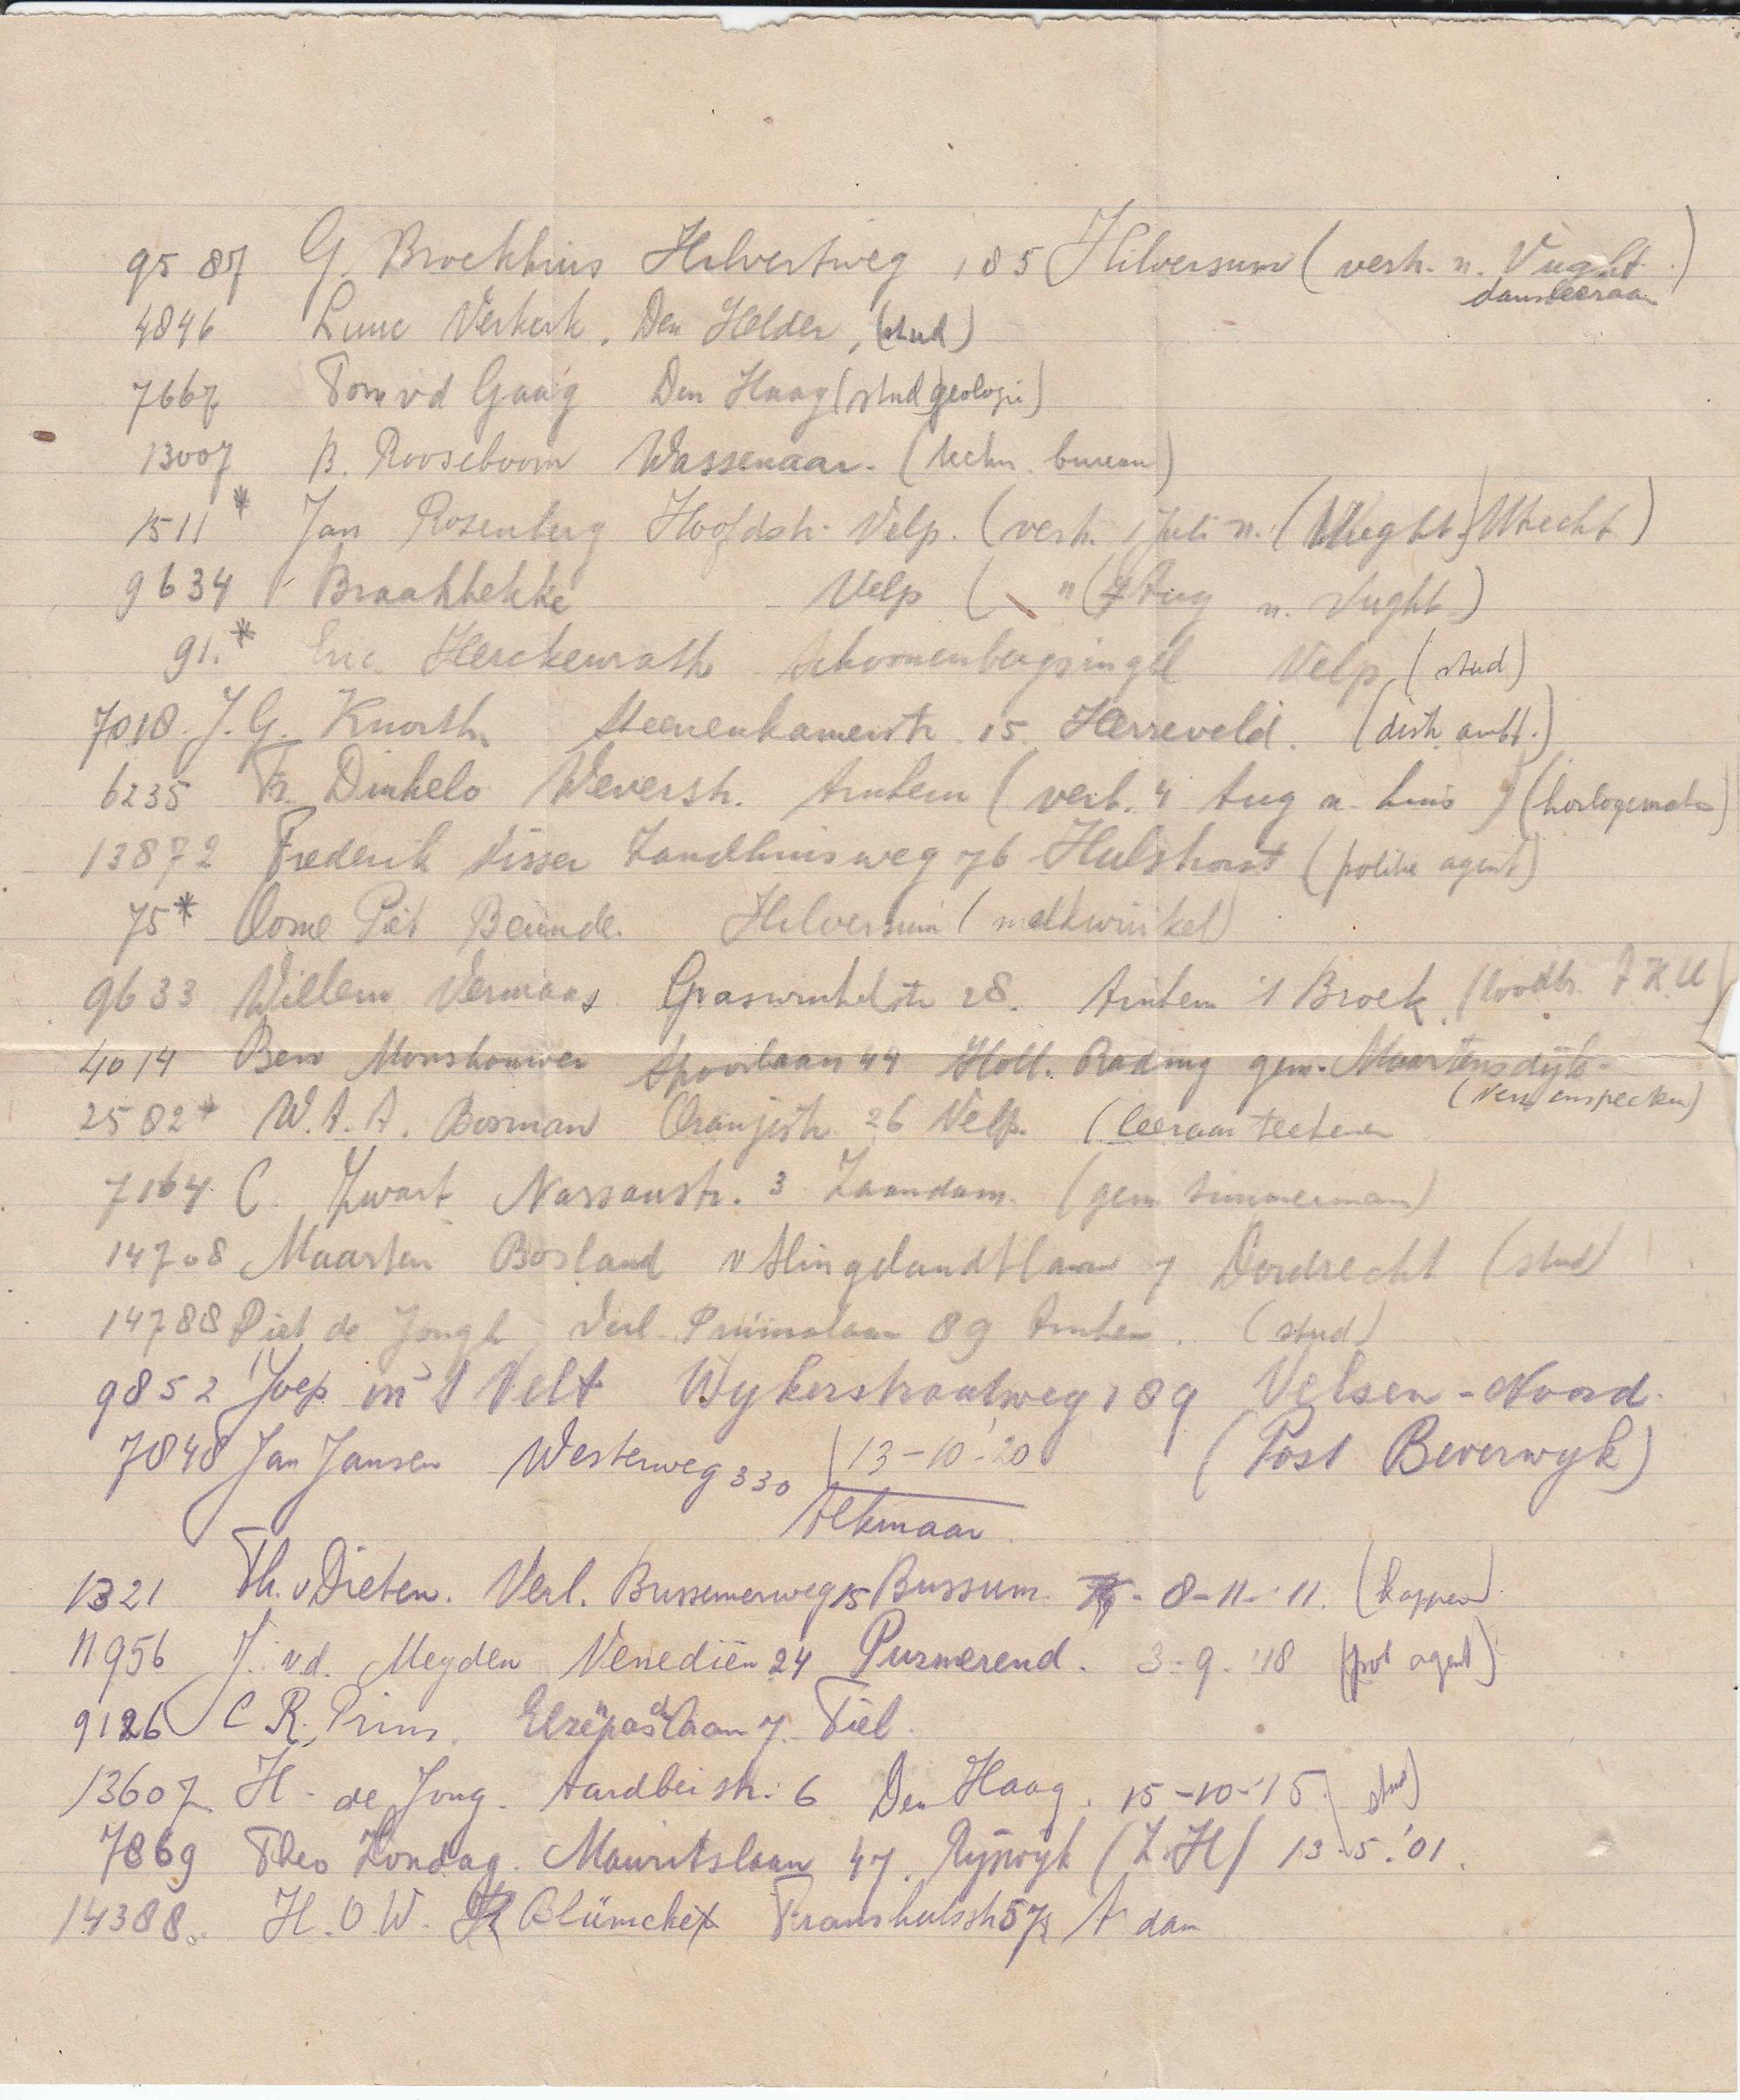 9587 G. Broekhuis Hilvertweg 185 Hilversum (vertr. n. Vught.)
dansleeraar
4846 Luuc Verkerk. Den Helder, (stud)
7667 Tom vd Gaag Den Haag (stud geologie)
13007 B. Rooseboom Wassenaar. (techn. bureau)
1511 * Jan Rosenberg Hoofdstr. Velp. (vertr. 1 Juli n. (Vught) Utrecht)
9634 Braakhekke Velp ( " (7 Aug n. Vught)
91. * Eric Herckenrath Schonenbergsingel Velp (stud)
7018. J.G. Knorth Steenenkamerstr 15 Herreveld. (distr. ambt.)
6235 Fr. Dinkelo Weverstr. Arnhem (vertr. 4 Aug n. huis) (horlogemaker)
13872 Frederik Visser Zandhuisweg 76 Hulshorst (politie agent)
75 * Oome Piet Beunde. Hilversum (melkwinkel)
9633 Willem Vermaas Graswinkelstr 28. Arnhem 't Broek (loodbr. AKU)
4014 Ben Monshouwer Spoorlaan 44 Holl. Rading gem. Maartensdijk.
(verz inspecteur)
2582 * W.A.A. Bosman Oranjestr 26 Velp. (leeraar teekenen
7164 C. Zwart Nassaustr. 3 Zaandam. (gem timmerman)
14708 Maarten Bosland v Slingelandtlaan 7 Dordrecht (stud)
14788 Piet de Jongh Verl. Pruimelaan 89 Arnhem. (stud)
9852 Joep in 't Velt Wykerstraatweg 189 Velsen-Noord.
7848 Jan Jansen Westerweg 330 13-10-'20 (Post Beverwyk)
Alkmaar
1321 Th. v Dieten. Verl. Bussemerweg 15 Bussum. 8-11-'11. (kapper)
11956 J. v.d. Meyden Venediën 24 Purmerend. 3-9-'18 (pol agent)
9126 C R. Prins. 7. Tiel.
13607 H. de Jong. Aardbeistr. 6 Den Haag. 15-10-'15 stud)
7869 Theo Zondag. Mauritslaan 47. Ryswyk (Z.H) 13-5-'01.
14388. H.O.W. Blümcke Franshalsstr 57 A dam